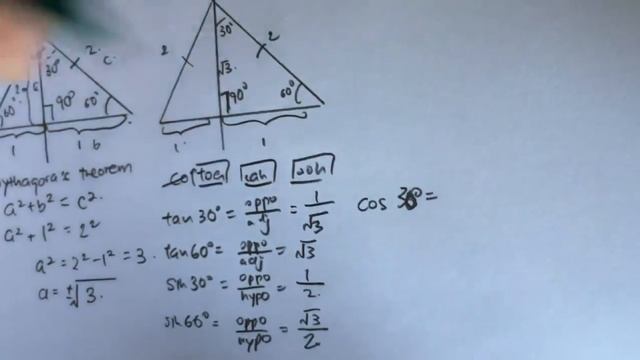 30° 2. c.
60° 90° 60°
1 1 b
ythagora's theorem
a²+b² = c².
a²+1² = 2²
a² = 2²-1² = 3.
a = ±√3.
30°
2 √3. 2
90° 60°
1 1
toa cah soh
tan 30° = oppo/adj = 1/√3
tan 60° = oppo/adj = √3
sin 30° = oppo/hypo = 1/2.
sin 60° = oppo/hypo = √3/2.
cos 30° =